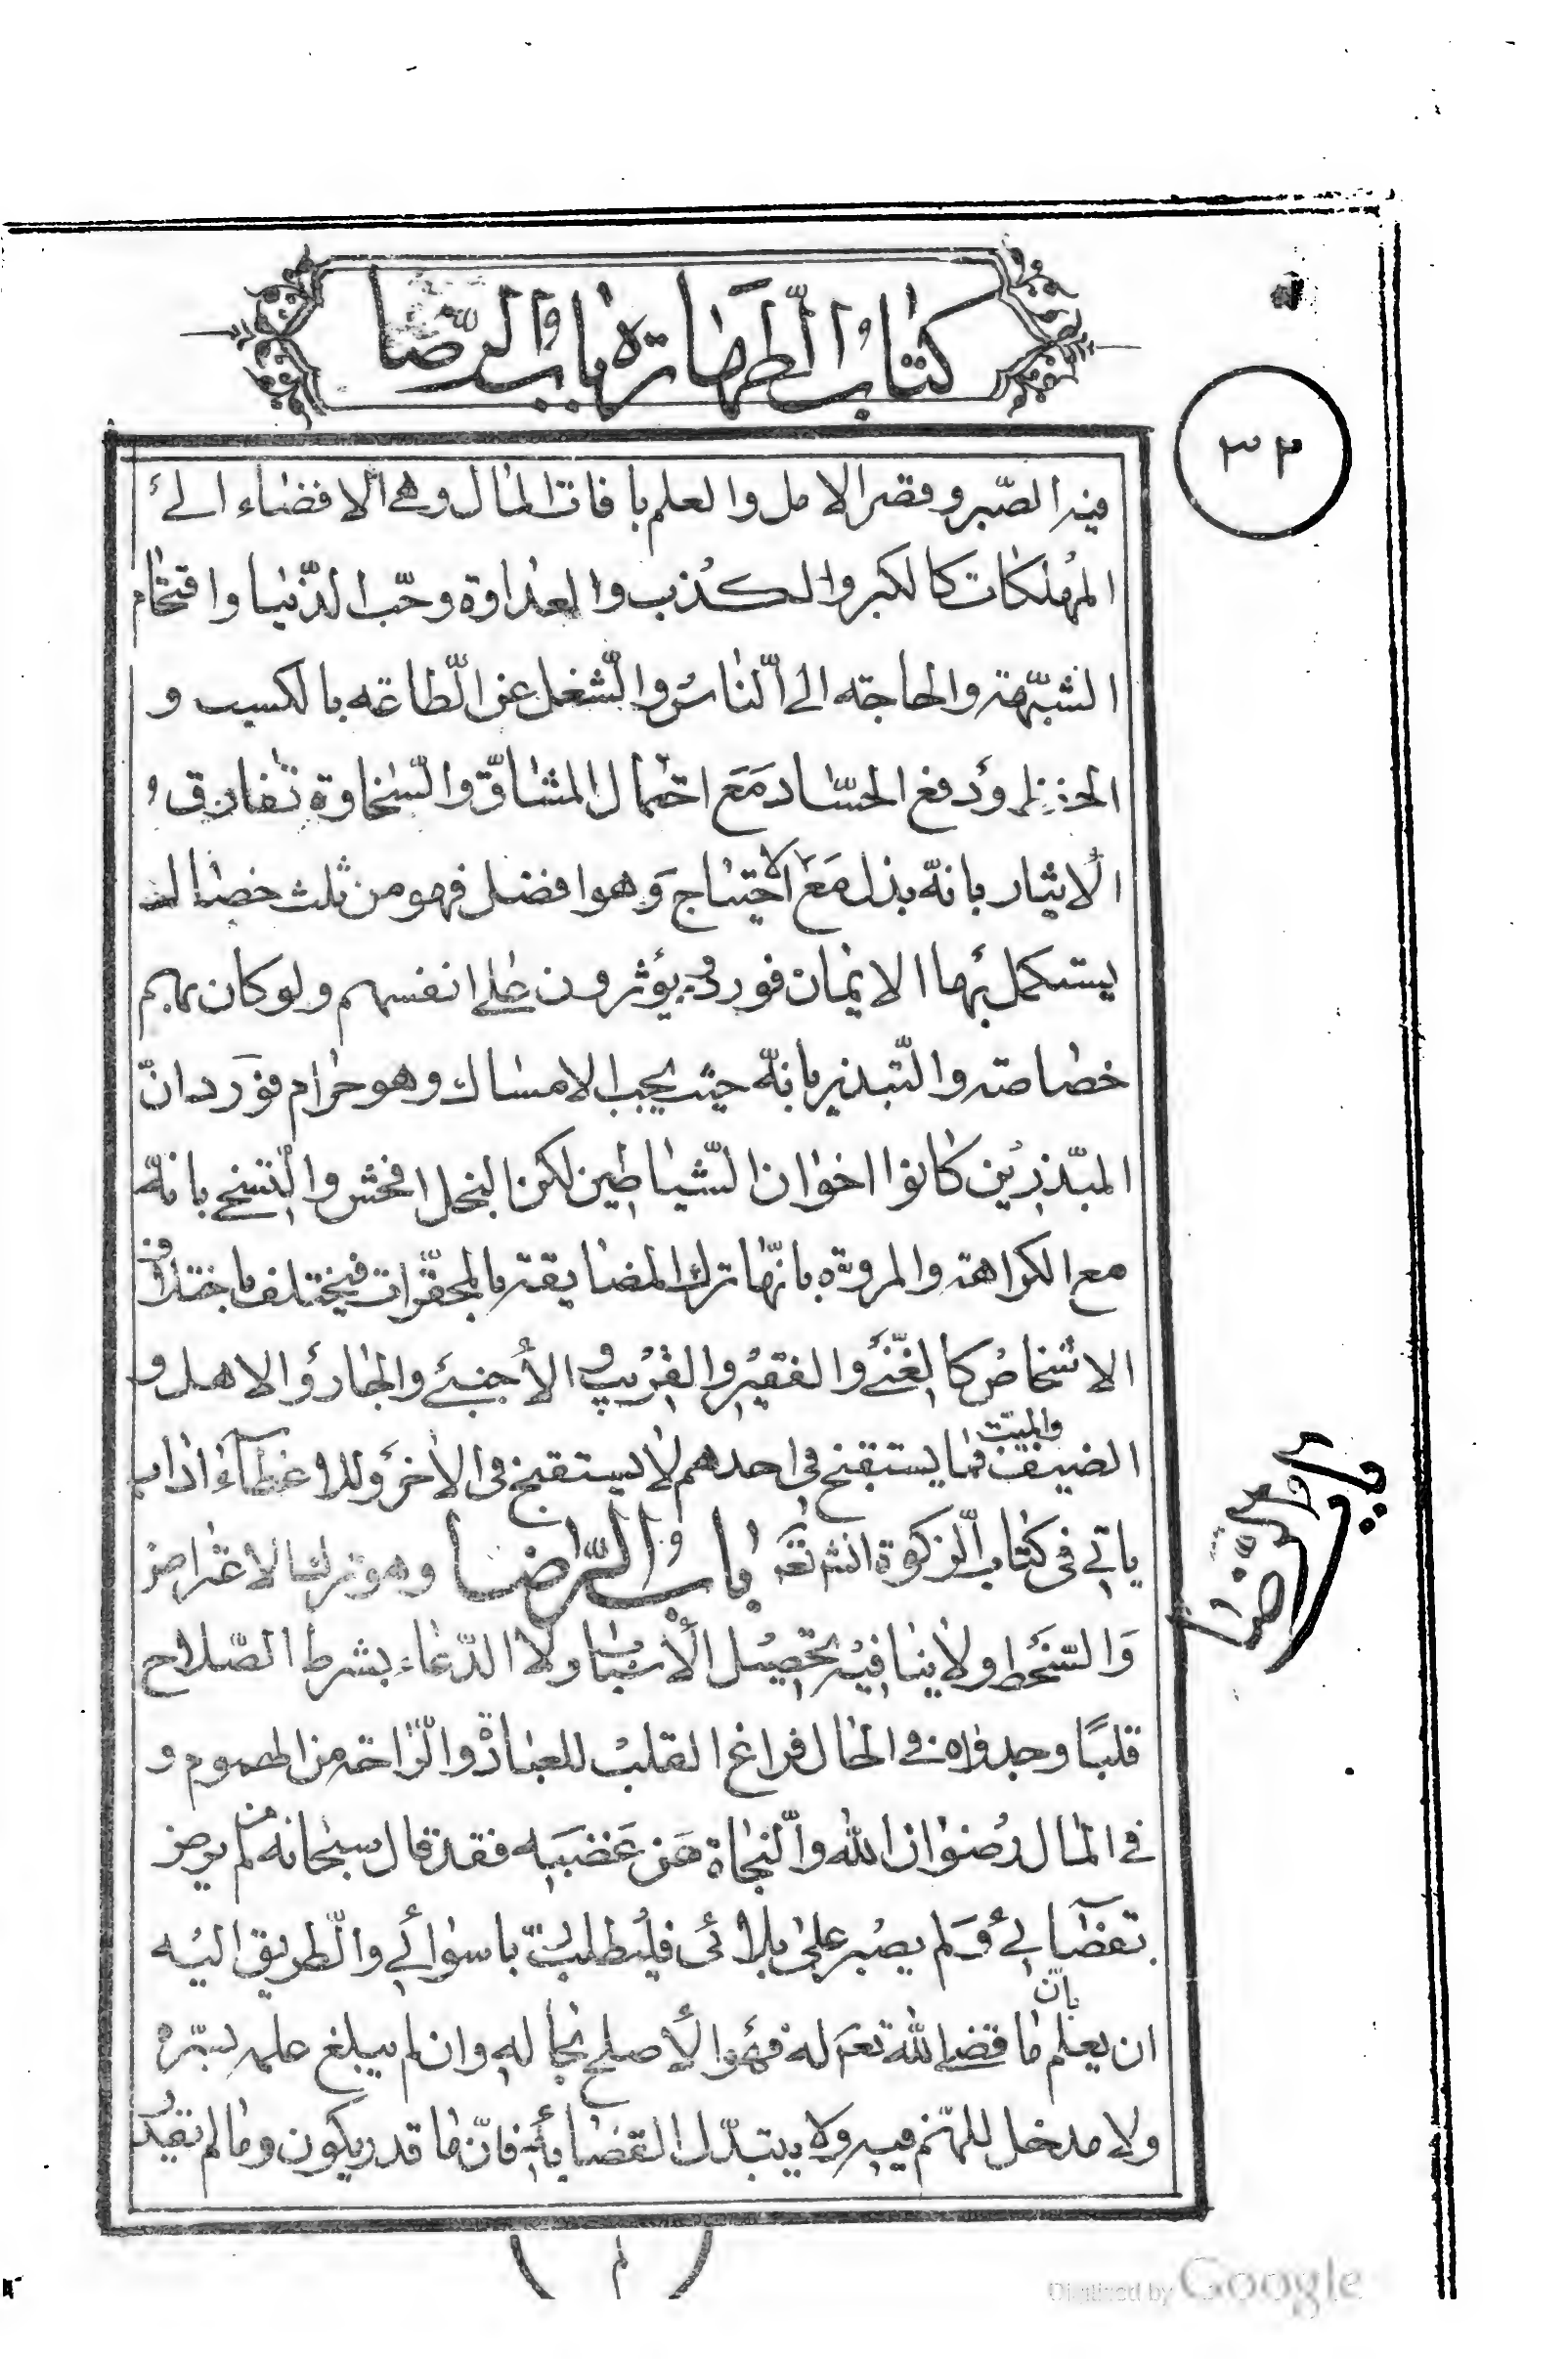 كتاب الطهارة باب الرضا
٣٢
فيه الصّبر وقصر الامل والعلم بافات المال وهي الافضاء الى
المهلكات كالكبر والكذب والعداوة وحبّ الدّنيا واقتحام
الشبهة والحاجة الى النّاس والشّغل عن الطّاعة بالكسب و
الحفظ ودفع الحسّاد مَعَ احتمال المشاقّ والسّخاوة تفارق
الايثار بانّه بذل مَعَ الاحتياج وَهو افضل فهو من ثلث خصال
يستكمل بها الايمان فورد ويؤثرون على انفسهم ولو كان بهم
خصاصة والتّبذير بانّه حيث يجب الامساك وهو حرام فوَرد انّ
المبذّرين كانوا اخوان الشّياطين لكن البخل افحش والتسخي بانّه
مع الكراهة والمروّة بانّها ترك المضايقة بالمحقّرات فيختلف باختلاف
الاشخاص كالغنيّ والفقير والقريب و الاجنبيّ والجار والاهل و
الضيف والميّت فما يستقبح في احدهم لا يستقبح في الاخر وللاعطاء اداب
ياتي في كتاب الزكوة انش تعَ باب الرّضا وهو ترك الاعتراض
وَالسّخط ولا ينافيه تحصيل الاسباب ولا الدّعاء بشرط الصّلاح
قلبًا وجدواه في الحال فراغ القلب للعبادة والرّاحة من الهموم و
في المال رضوان الله والنّجاة من غضبه فقد قال سبحانه من لم يرض
بقضائي وَلم يصبر على بلائي فليطلب ربّا سوائي والطّريق اليه
ان يعلم بانّ ما قضى الله تعَ له فهو الاصلح بحاله وان لم يبلغ علمه بسرّه
ولا مدخل للهمّ فيه ولا يتبدّل القضا به فانّ ما قدر يكون وما لم يقدر
لم
باب الرّضا
Digitized by Google